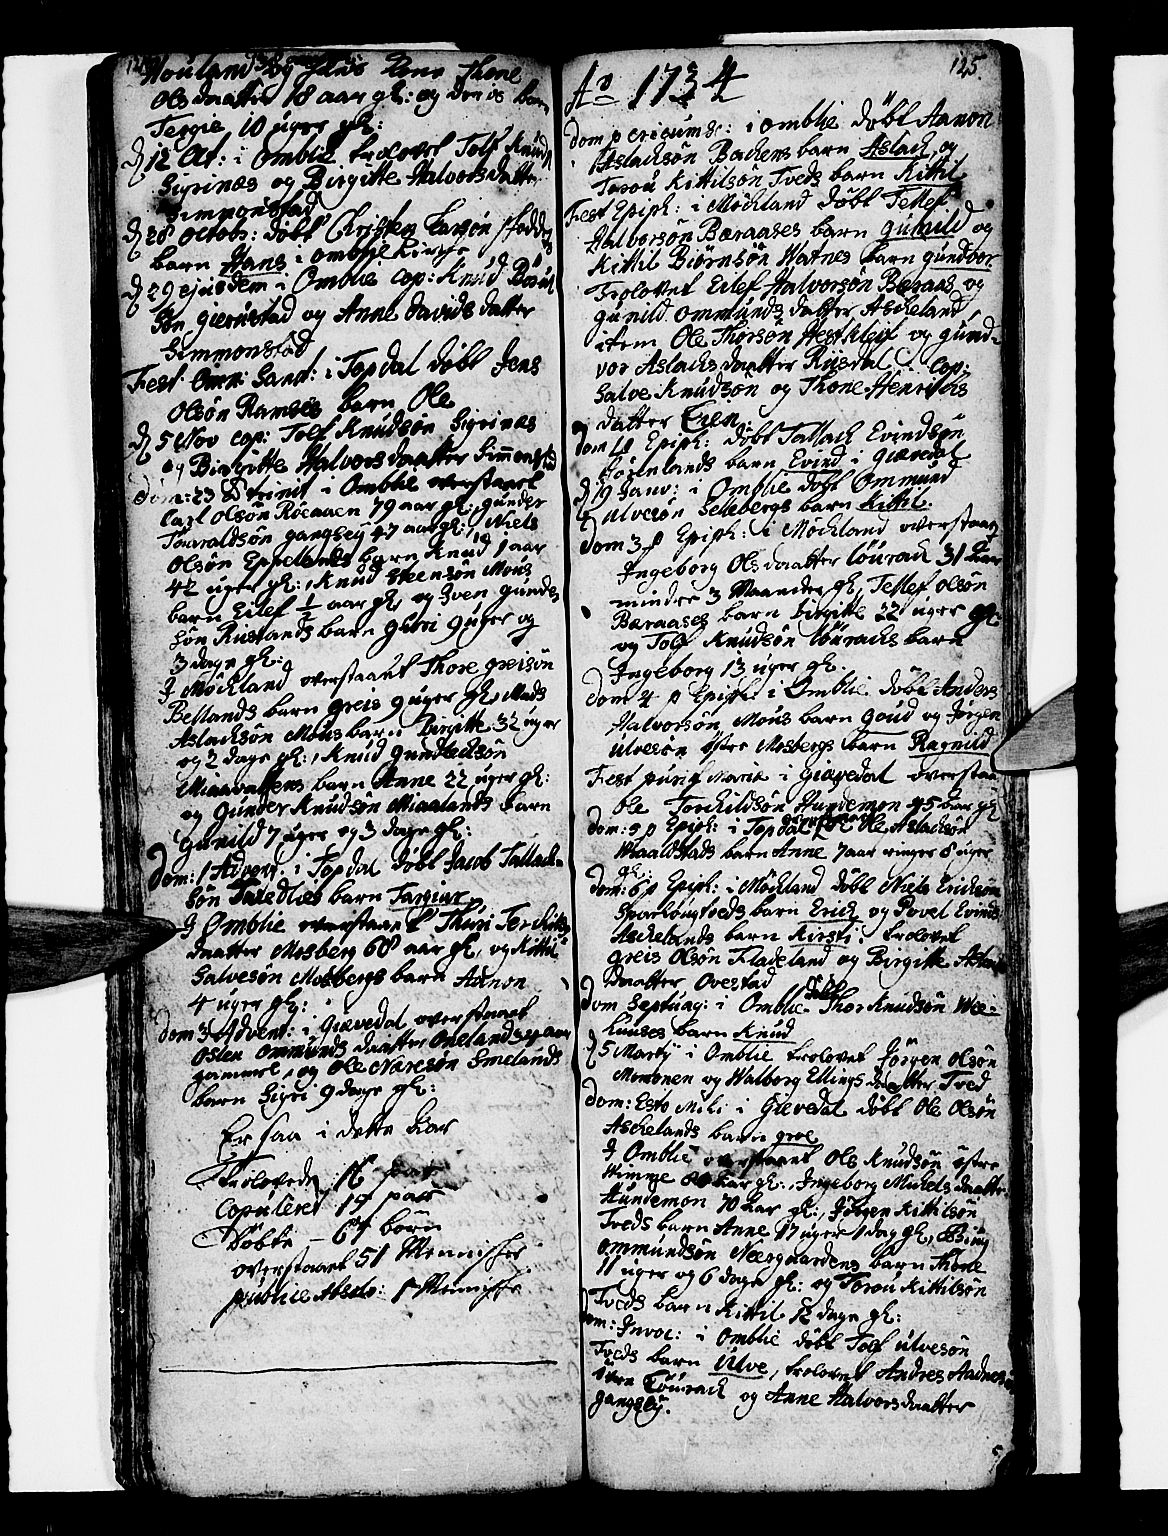 Olsdaatter 18 aar gl: og deris barn
Tergie 10 uger gl:
12 Oct: i Omblie trolovet Tolf Knuds
Sigrinæs og Birgitte Halvorsdatter
Simmonstad
28 Octobr: døbt Christen Larsøn
barn Hans i omblie Kirche
29 ejusdem i Omblie cop: Knud
søn gierustad og Anne Davids datter
Simmonstad
Fest: Omn: Sanct: i Topdal døbt Jens
Olsøn Ramses barn Ole
5 Nov cop: Tolf Knudsøn Sigrinæs
og Birgitte Halvorsdaatter Simmonstad
Dom: 23 Trinit i Omblie overstaaet
Carl Olsøn Roeaaen 79 aar gl: gunder
Taaraldsøn gangsey 47 aar gl: Niels
Olsøn Eppelands barn Knud 1 aar
42 uger gl: Knud Steensøn Mous
barn Eilef ½ aar gl, og Sven gunder
søn Rustands barn guri 9 uger og
3 dage gl:
J Möckland overstaaet Thore greisøn
Bestands barn greis 9 uger gl, Mads
Aslacksøn Mous barn Birgitte 32 uger
og 2 dage gl: Knud Gundersøn
Miaavatnens barn Anne 22 uger gl:
og Gunder Knudsøn Miaalands barn
Gunild 7 uger og 3 dage gl:
Dom: 1 Advent: i Topdal døbt Jacob Tallack-
søn barn Targiur
J Omblie overstaaet Thuri Terkilds
daatter Mosberg 68 aar gl, og Kittil
Salvesøn Mosbergs barn Aanon
4 uger gl:
Dom 3 Advent: i Giøvedal overstaaet
Osleu Ommunds daatter
gammel, og Ole Næresøn Smelands
barn Sigri 9 dage gl:
Er saa i dette Aar
Trolovede 16 par
Copuleret 19 par
Døbte - 67 børn
overstaaet 51 Mennischer
publice Absolv: 1 Mennische
125.
Ao 1734
dom p circumc: i omblie døbt Aanon
Aslachsøn Bachens barn Aslach, og
Torou Kittilsøn Tveds barn Kittil
Fest Epiph: i Möckland døbt Tellef
Halvorsøn Bæraases barn gunild og
Kittil Biørnsøn Watnes barn gundvor
Trolovet Eilef Halvorsøn Bæraas og
gunild Ommunds datter Ascheland,
item Ole Thorsøn Hestkleif og gund-
vor Aslachsdaatter Rusdal. Cop:
Salve Knudsøn og Thone Henrichs
datter
dom 1 p Epiph: døbt Tallach Evindsøn
barn Evind i Giøvedal
19 Janv: i Omblie døbt Ommund
Ulvesøn Sellebergs barn Kittil.
Dom 3 p Epiph: i Möckland overstaaet
Ingeborg Olsdaatter Lourach 31 Aar
mindre 3 Maander gl, Tellef Olsøn
Bæraases barn birgitte 22 uger gl:
og Tolf Knudsøn Lourachs barn
Ingeborg 13 uger gl.
Dom 4 p Epiph: i Omblie døbt Anders
Halvorsøn Mous barn Goud og Jørgen
Ulvesøn østre Mosbergs barn Ragnild
Fest purif: Mariæ i Giøvedal overstaaet
Ole Torchildsøn Hundemon 45 Aar gl
dom: 5 p Epiph: i Topdal Ole Aslachsøn
barn Anne 7 aar ringer 8 uger
gl:
dom: 6 p Epiph: i Möckland døbt Niels Erichsøn
barn Erich og Povel Evinds
Aschelands barn Kirsti: trolovet
Greis Olsøn Fladeland og Birgitte
daatter Ovestad
dom Septuag: i Omblie døbt Thor Knudsøn Wee-
huuses barn Knud
5 Martij i Omblie trolovet Jørgen Olsøn
Momonen og Walborg Ellings daatter Tved
Dom: Esto Mihi i Giøvedal døbt Ole Olsøn
Aschelands barn groe
J Omblie overstaaet Ole Knudsøn østre
Wimme Aar gl:, Ingeborg Michels daatter
Hundemon 70 Aar gl:, Jørgen Kittilsøn
Tveds barn Anne 17 uger 1 dag gl,
Ommundsøn Neergaardens barn Thone
11 uger og 6 dage gl: og Torou Kittilsøn
Tveds barn Kittil 12 dage gl:
Dom: Invoc: i Omblie døbt Tolf Ulvesøn
Tveds barn Ulve, trolovet Andres Aadnes
søn Lourach og Anne Halvorsdaatter
gangsey.